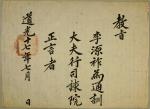 教旨
李源祚爲通訓
大夫行司諫院
正言者
道光七年七月 日